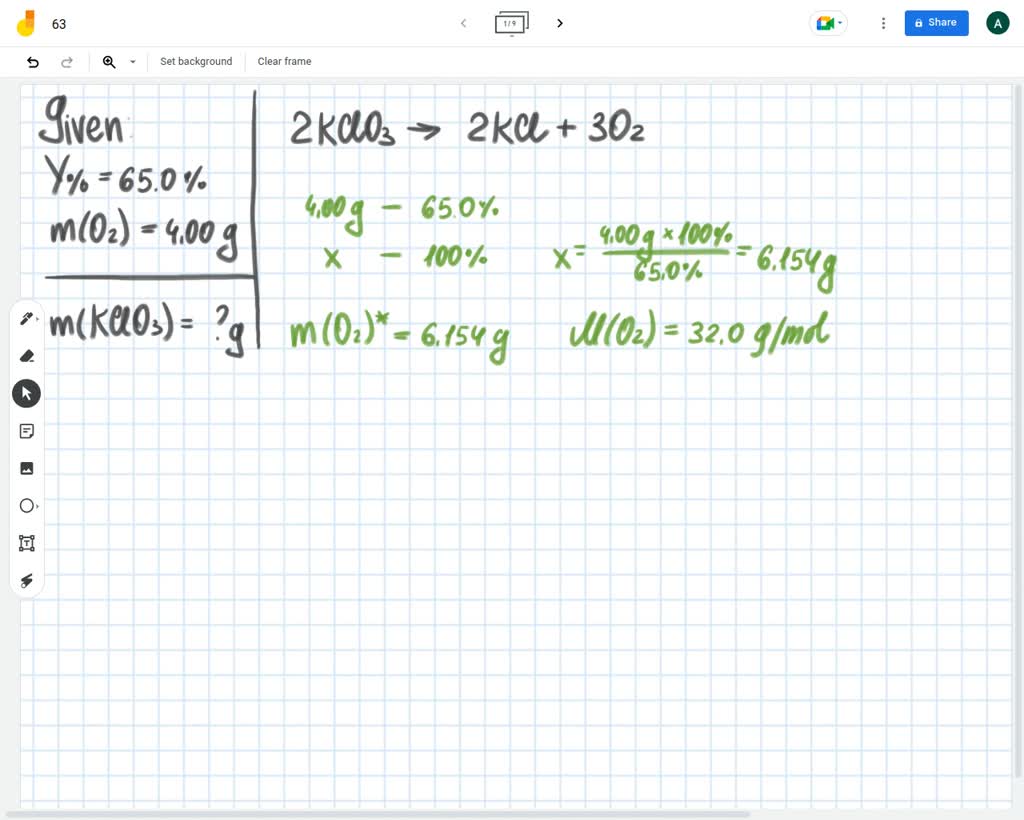 63
1/9
Share
A
Set background
Clear frame
Given:
Y% = 65.0%
m(O₂) = 4.00 g
m(KClO₃) = ?g
2KClO₃ → 2KCl + 3O₂
4.00 g – 65.0%
x – 100%
x = 4.00 g × 100% / 65.0% = 6.154 g
m(O₂)* = 6.154 g
M(O₂) = 32.0 g/mol
T